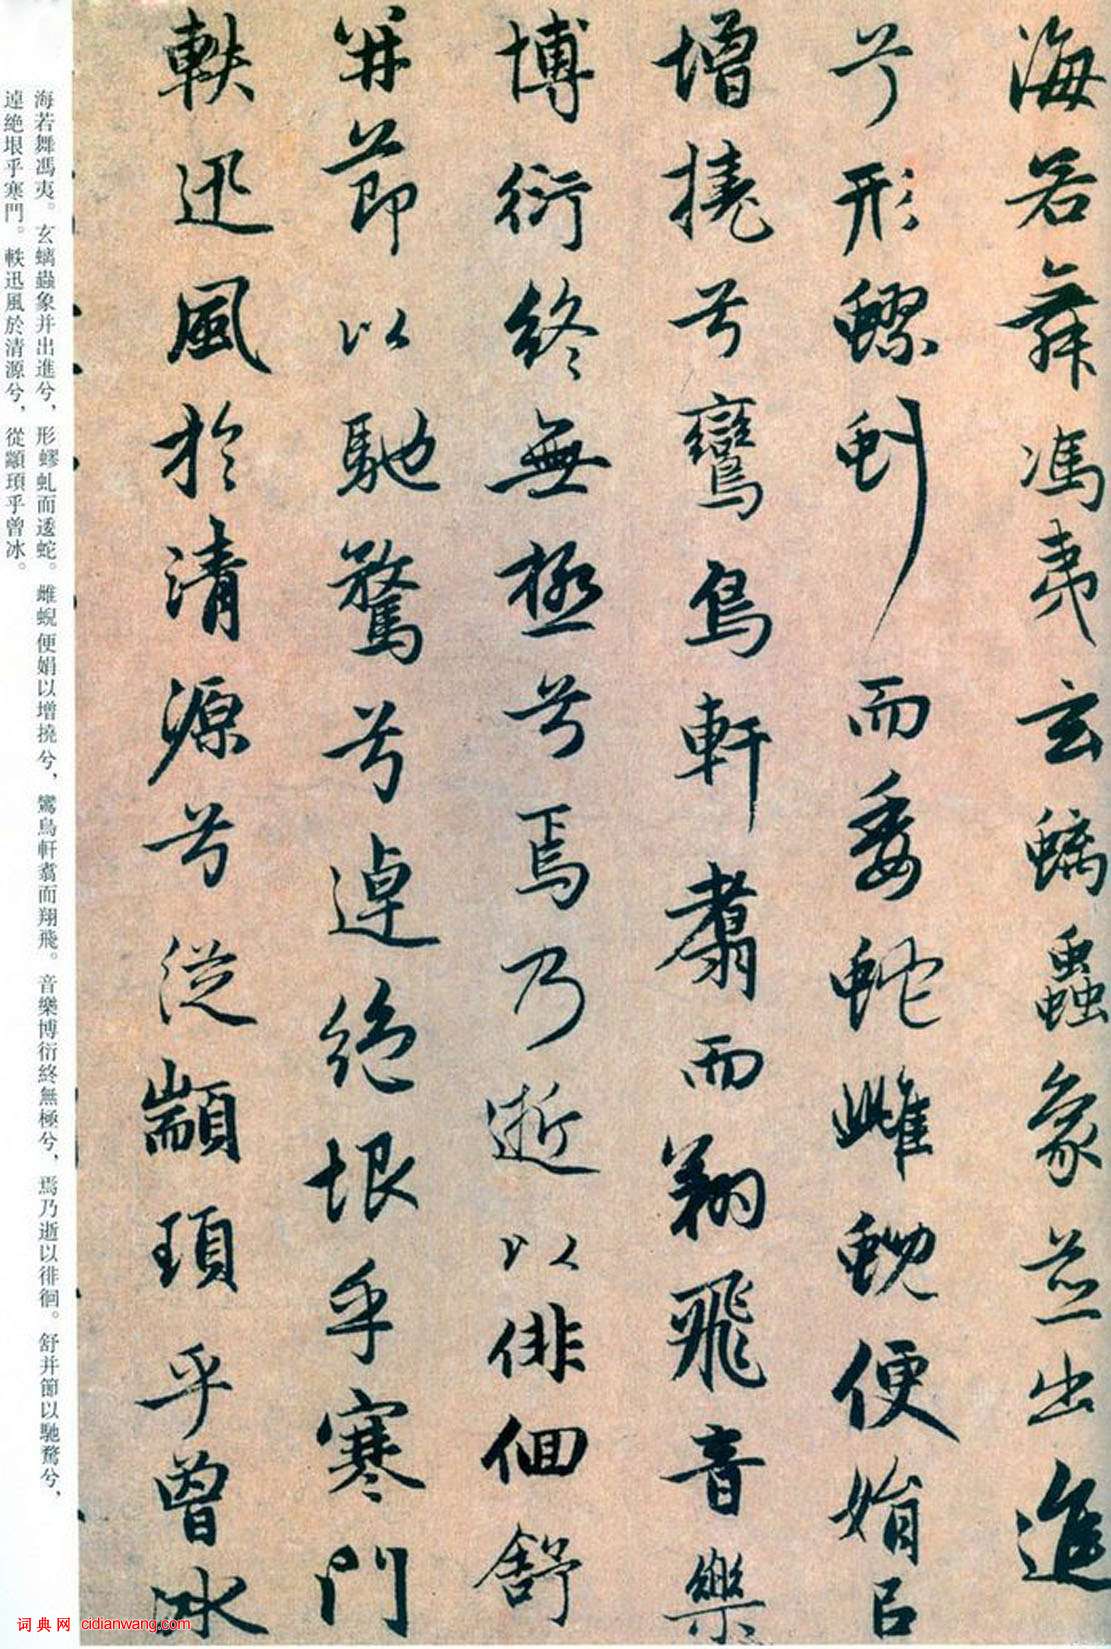 海若舞馮夷玄螭蟲象並出進
兮形蟉虯而委蛇雌蜺便娟以
增撓兮鸞鳥軒翥而翔飛音樂
博衍終無極兮焉乃逝以徘徊舒
并節以馳騖兮逴絕垠乎寒門
軼迅風於清源兮從顓頊乎曾冰
海若舞馮夷。玄螭蟲象并出進兮，形蟉虬而逶蛇。雌蜺便娟以增撓兮，鸞鳥軒翥而翔飛。音樂博衍終無極兮，焉乃逝以徘徊。舒并節以馳騖兮，
逴絶垠乎寒門。軼迅風於清源兮，從顓頊乎曾冰。
词典网 cidianwang.com